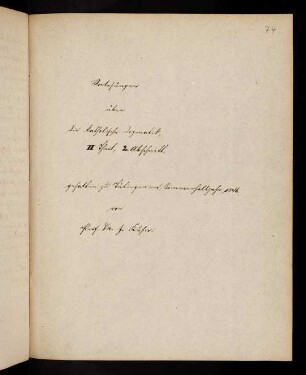 74
Vorlesungen
über
die katholische Dogmatik,
II Theil, 2. Abschnitt.
gehalten zu Tübingen im Sommerhalbjahr 1846
von
Prof. Dr. J. Kuhn.